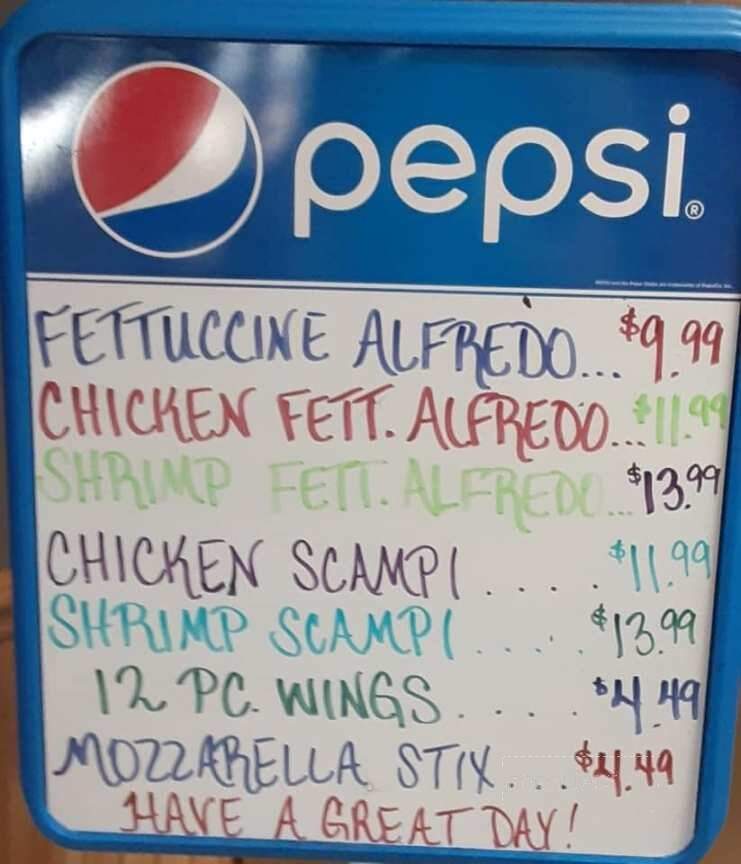 pepsi®
FETTUCCINE ALFREDO...$9.99
CHICKEN FETT. ALFREDO...$11.99
SHRIMP FETT. ALFREDO...$13.99
CHICKEN SCAMPI.....$11.99
SHRIMP SCAMPI.....$13.99
12 PC. WINGS.....$4.49
MOZZARELLA STIX...$4.49
HAVE A GREAT DAY!